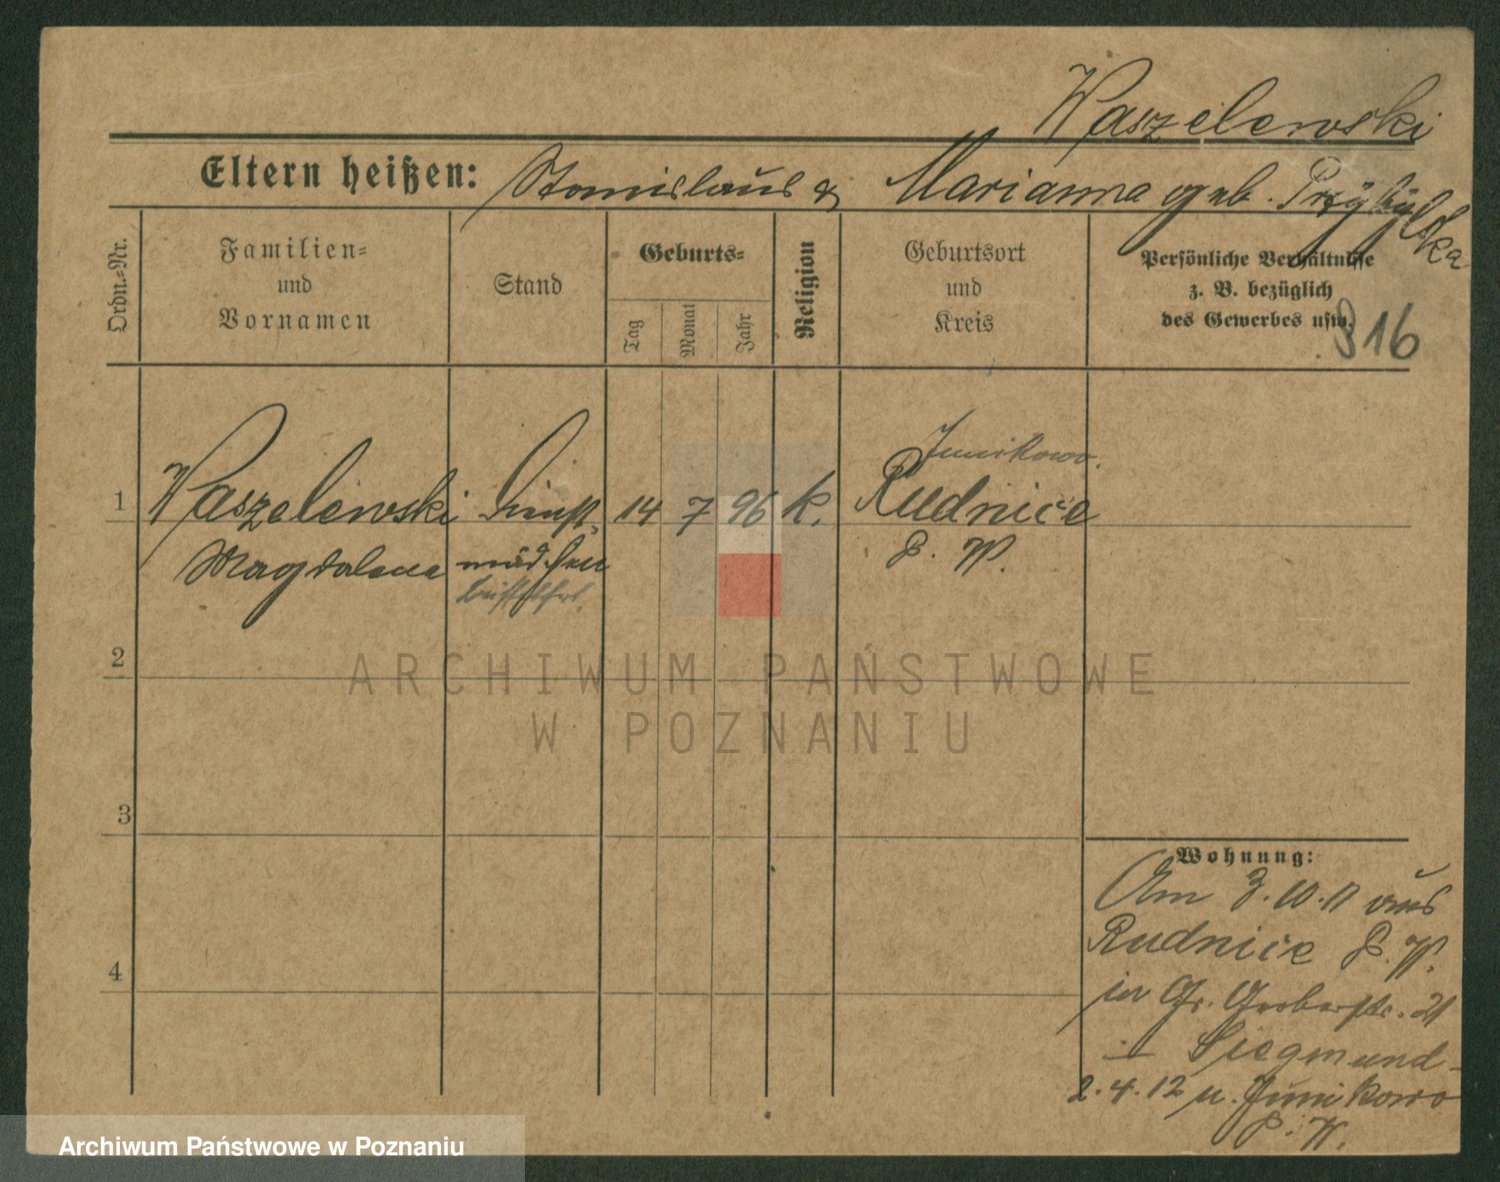 Waszelewski
Eltern heißen: Stanislaus & Marianna geb. Przybylska
Ordn.=Nr.
Familien=
und
Vornamen
Stand
Geburts=
Tag
Monat
Jahr
Religion
Geburtsort
und
Kreis
Persönliche Verhältnisse
z. B. bezüglich
des Gewerbes usw.
916
Junikowo.
1 Waszelewski Dienst- 14 7 96 k. Rudnice
Magdalena mädchen P. W.
2
ARCHIWUM PAŃSTWOWE
W POZNANIU
3
4
Wohnung:
Am 3.10.11 aus
Rudnice P. W.
in Gr. Gerberstr. 21
— Siegmund -
2.4.12 n. Junikowo
P. W.
Archiwum Państwowe w Poznaniu